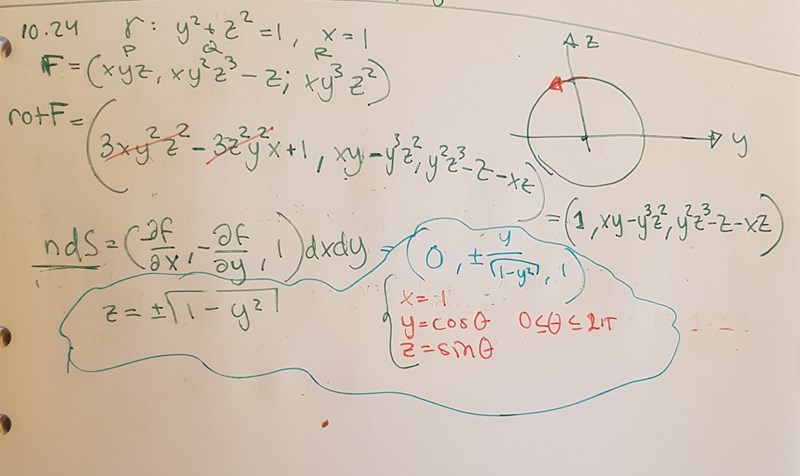 10.24 γ: y² + z² = 1, x = 1
P Q R
F = (xyz, xy²z³ - z; xy³z²)
rotF = (3xy²z² - 3z²y²x + 1, xy - y³z², y²z³ - z - xz)
= (1, xy - y³z², y²z³ - z - xz)
z
y
ndS = (∂f/∂x, -∂f/∂y, 1) dxdy = (0, ± y/√(1-y²), 1)
z = ±√(1 - y²)
x = 1
y = cosθ 0 ≤ θ ≤ 2π
z = sinθ